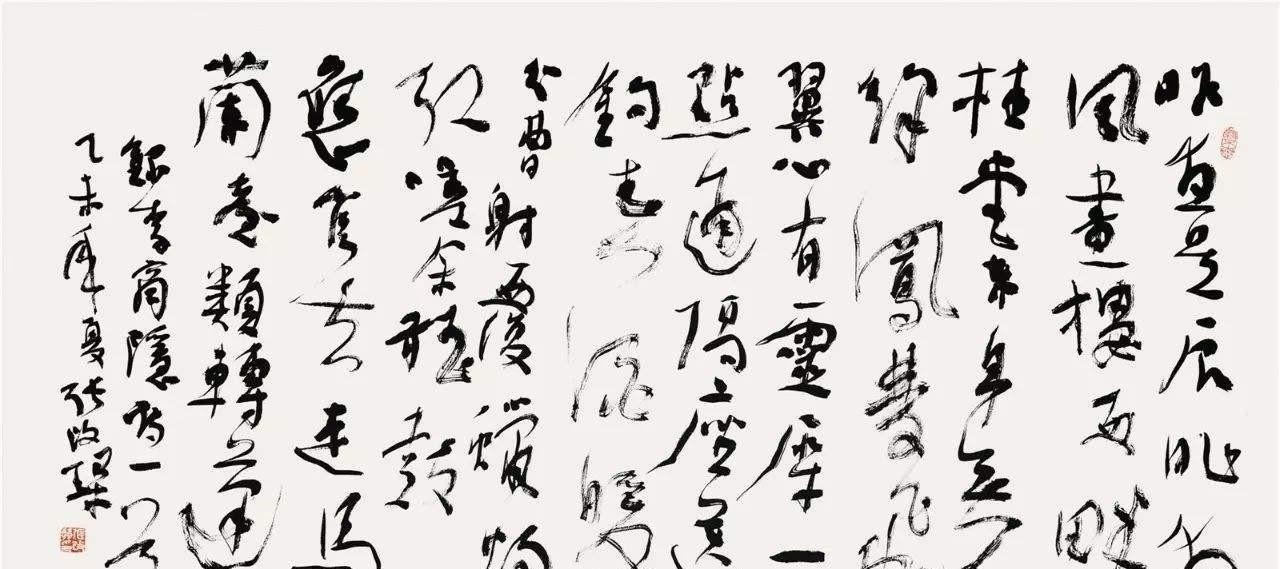 昨夜星辰昨夜
風畫樓西畔
桂堂東身無
綵鳳雙飛
翼心有靈犀一
點通隔座送
鉤春酒暖
分曹射覆蠟
紅嗟余聽鼓
應官去走馬
蘭臺類轉蓬
錄李商隱詩一首
乙未年夏張改琴